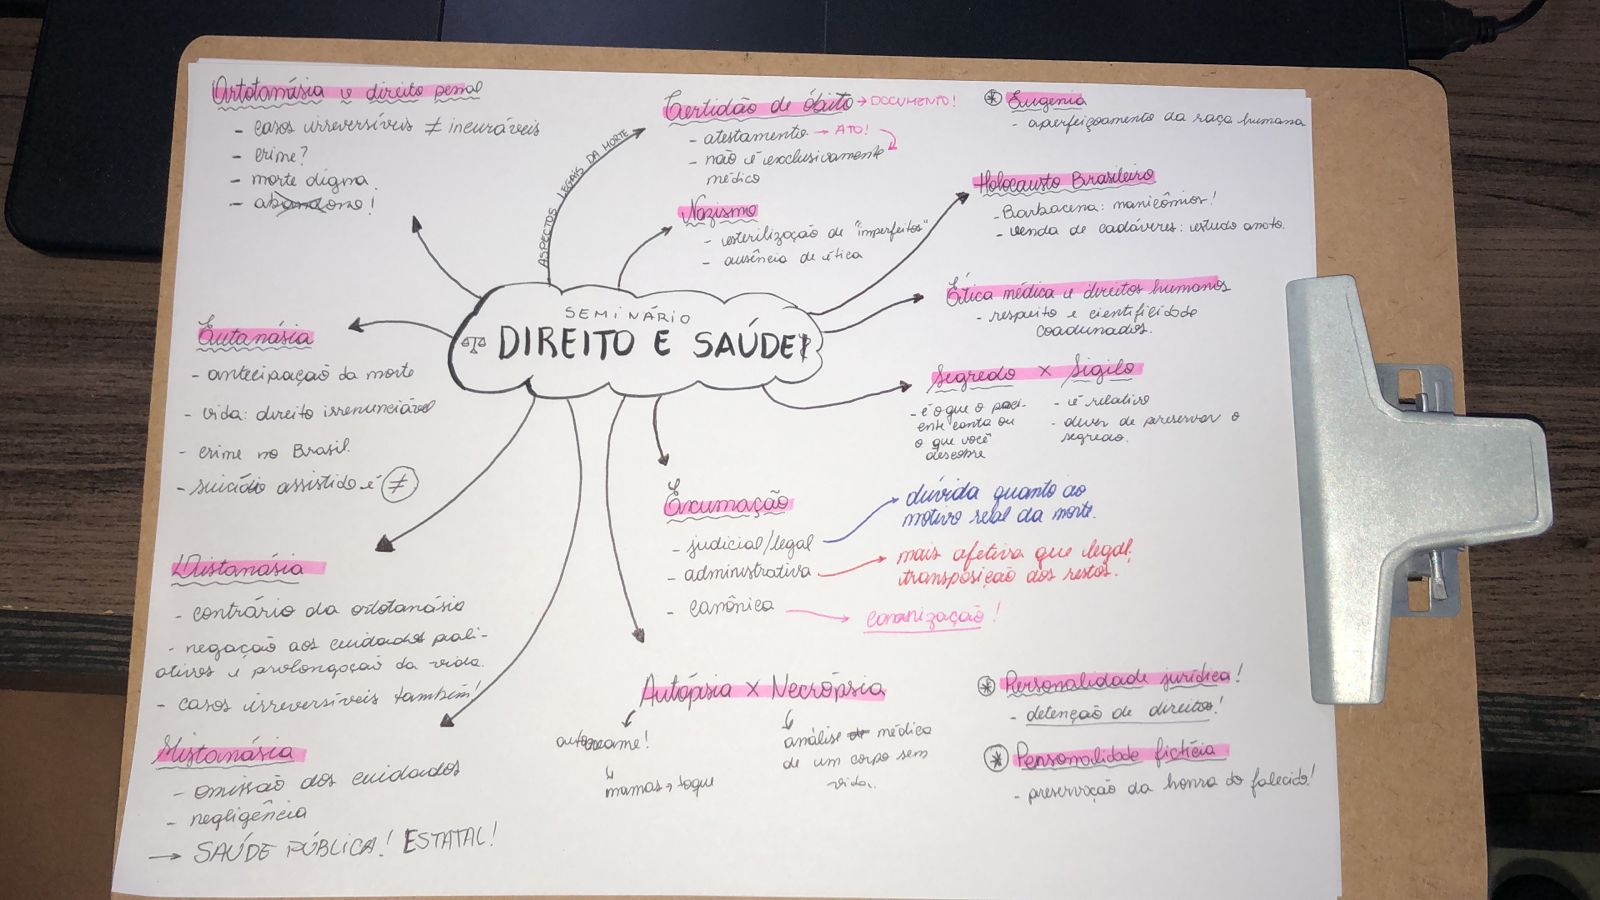 Ortotanásia e direito penal
- casos irreversíveis ≠ incuráveis
- crime?
- morte digna.
- abandono!
ASPECTOS LEGAIS DA MORTE
Certidão de óbito → DOCUMENTO!
- atestamento → ATO!
- não é exclusivamente
médico
Nazismo
- esterilização de "imperfeitos"
- ausência de ética
* Eugenia
- aperfeiçoamento da raça humana
Holocausto Brasileiro
- Barbacena: manicômios!
- venda de cadáveres: estudo anato.
Ética médica e direitos humanos
- respeito e cientificidade
coadunados.
SEMINÁRIO
DIREITO E SAÚDE
Segredo x Sigilo
- é o que o paci-
ente conta ou
o que você
descobre
- é relativo
- dever de preservar o
segredo.
Eutanásia
- antecipação da morte
- vida: direito irrenunciável
- crime no Brasil.
- suicídio assistido é ≠
Distanásia
- contrário da ortotanásia
- negação aos cuidados pali-
ativos e prolongação da vida.
- casos irreversíveis também!
Mistanásia
- omissão dos cuidados
- negligência
→ SAÚDE PÚBLICA! ESTATAL!
Exumação
- judicial/legal
dúvida quanto ao
motivo real da morte.
- administrativa
mais afetiva que legal!
transposição dos restos.
- canônica
canonização!
Autópsia x Necrópsia
autoexame!
mamas, toque
análise médica
de um corpo sem
vida.
* Personalidade jurídica!
- detenção de direitos!
* Personalidade fictícia
- preservação da honra do falecido!